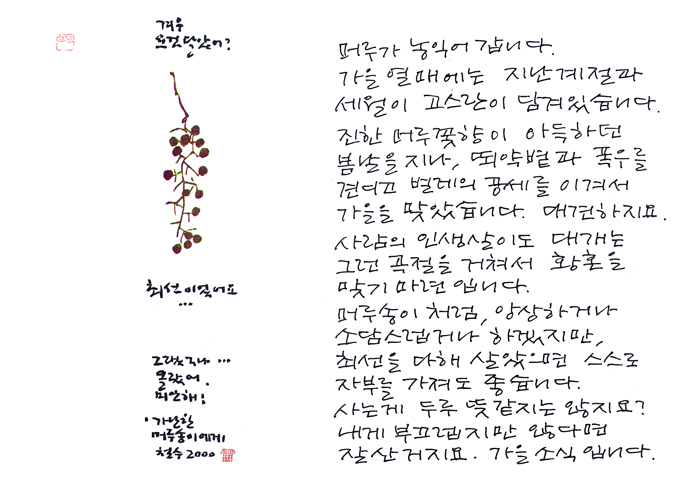 겨우
요것 달았어?
최선이었어요
...
그랬구나 ...
몰랐어.
미안해!
· 가난한
머루송이에게
철수 2000
머루가 농익어 갑니다.
가을 열매에는 지난계절과
세월이 고스란이 담겨있습니다.
진한 머루꽃향이 아득하던
봄날을 지나, 뙤약볕과 폭우를
견디고 벌레의 공세를 이겨서
가을을 맞았습니다. 대견하지요.
사람의 인생살이도 대개는
그런 곡절을 거쳐서 황혼을
맞기 마련입니다.
머루송이처럼, 앙상하거나
소담스럽거나 하겠지만,
최선을 다해 살았으면 스스로
자부를 가져도 좋습니다.
사는게 두루 뜻같지는 않지요?
내게 부끄럽지만 않다면
잘 산 거지요. 가을 소식입니다.